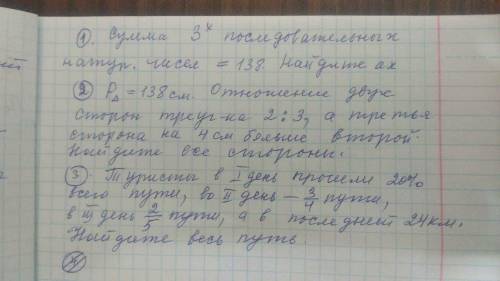 ①. Сумма 3ˣ последовательных
натур. чисел = 138. Найдите их
② P△ = 138 см. Отношение двух
сторон треуг-ка 2:3, а третья
сторона на 4 см больше второй.
Найдите все стороны.
③. Туристы в I день прошли 20%
всего пути, во II день – 3/4 пути,
в III день 2/5 пути, а в последний 24 км.
Найдите весь путь.
④